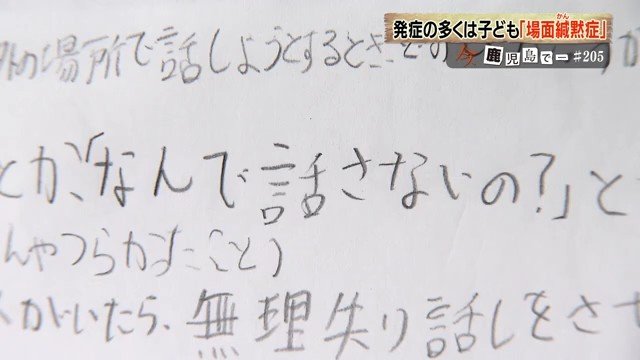 発症の多くは子ども「場面緘黙症」
かん
今鹿児島で― #205
外の場所で話しようとするとき
とか、「なんで話さないの?」と
んやつらかったこと)
がいたら、無理失り話しをさせ